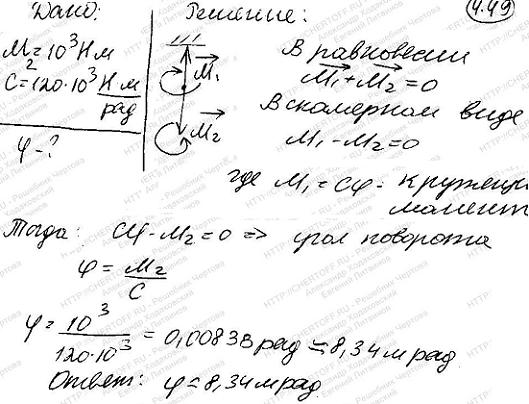 4.49
Дано:
M₂=10³Нм
C=120·10³ Нм/рад
φ-?
Решение:
M₁
M₂
В равновесии
M₁+M₂=0
В скамерном виде
M₁-M₂=0
где M₁=Cφ- кружещи
момент
Тогда: Cφ-M₂=0 => угол поворота
φ=M₂/C
φ=10³/120·10³=0,00833 рад ≃8,34 мрад.
Ответ: φ=8,34 мрад.
HTTP://CHERTOFF.RU - Решебник Чертова
Александр Козловский
Евгений Литвинов